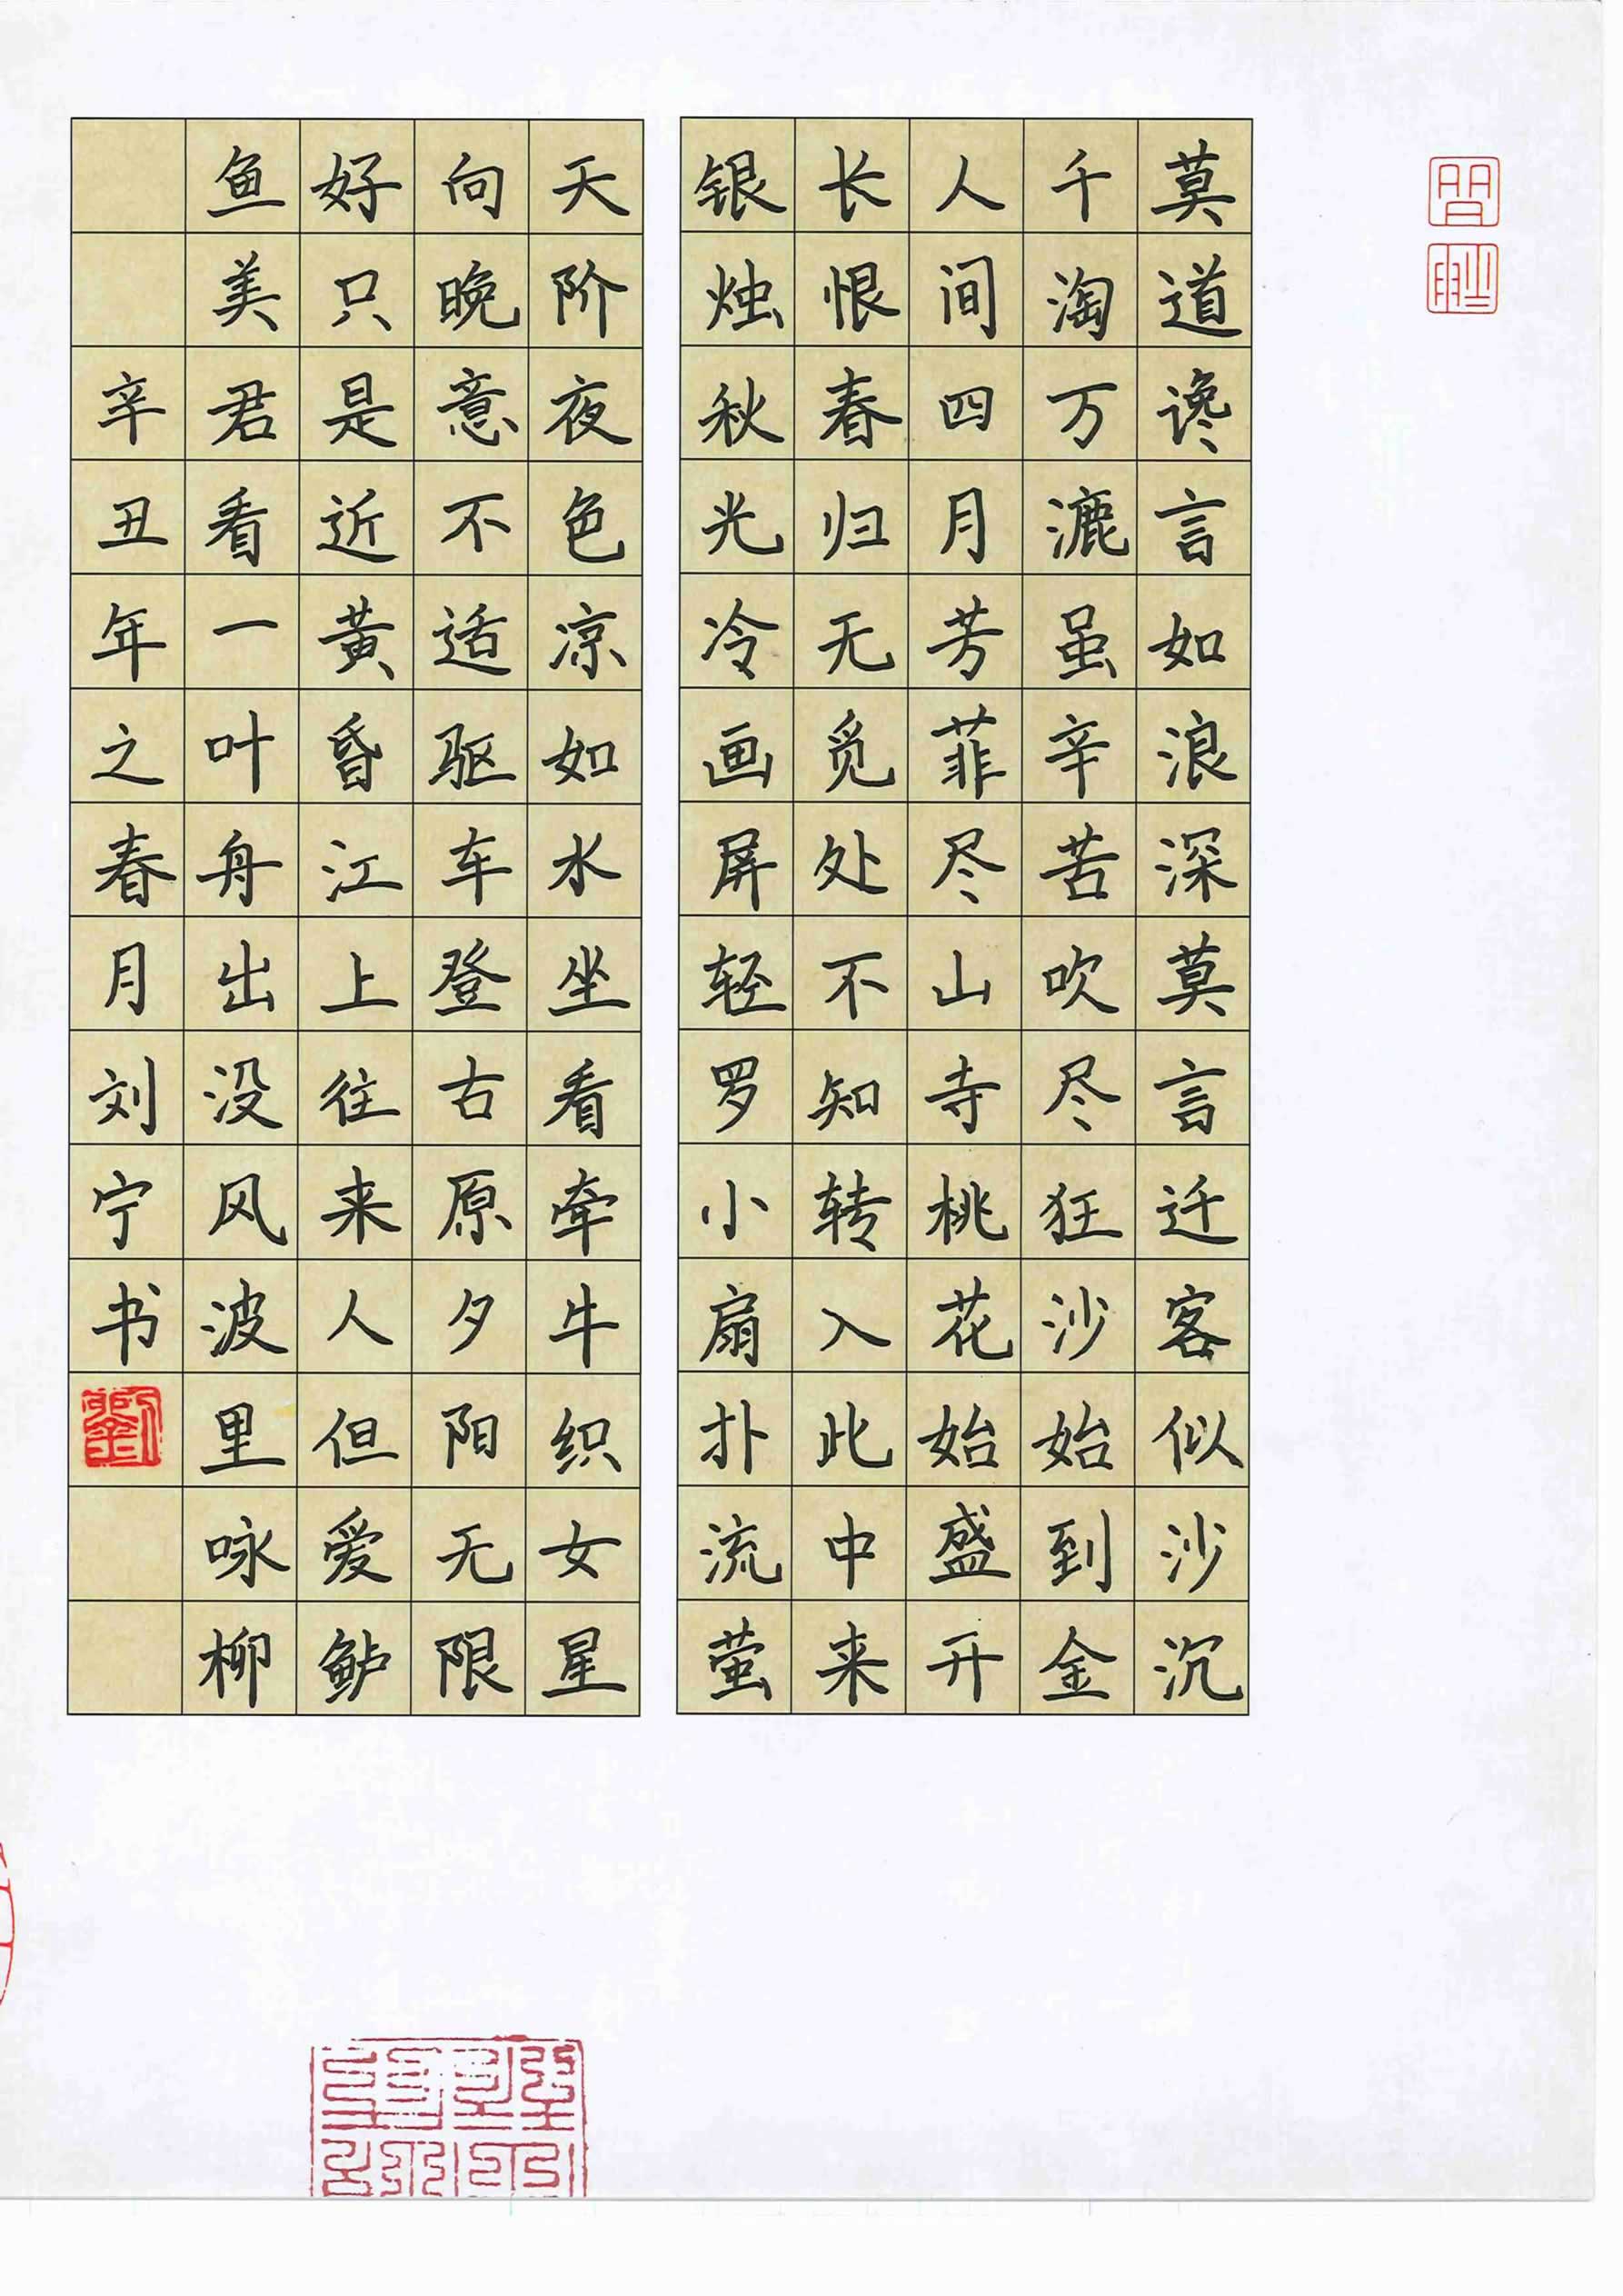 莫道谗言如浪深莫言迁客似沙沉
千淘万漉虽辛苦吹尽狂沙始到金
人间四月芳菲尽山寺桃花始盛开
长恨春归无觅处不知转入此中来
银烛秋光冷画屏轻罗小扇扑流萤
天阶夜色凉如水坐看牵牛织女星
向晚意不适驱车登古原夕阳无限
好只是近黄昏江上往来人但爱鲈
鱼美君看一叶舟出没风波里咏柳
辛丑年之春月刘宁书
劉